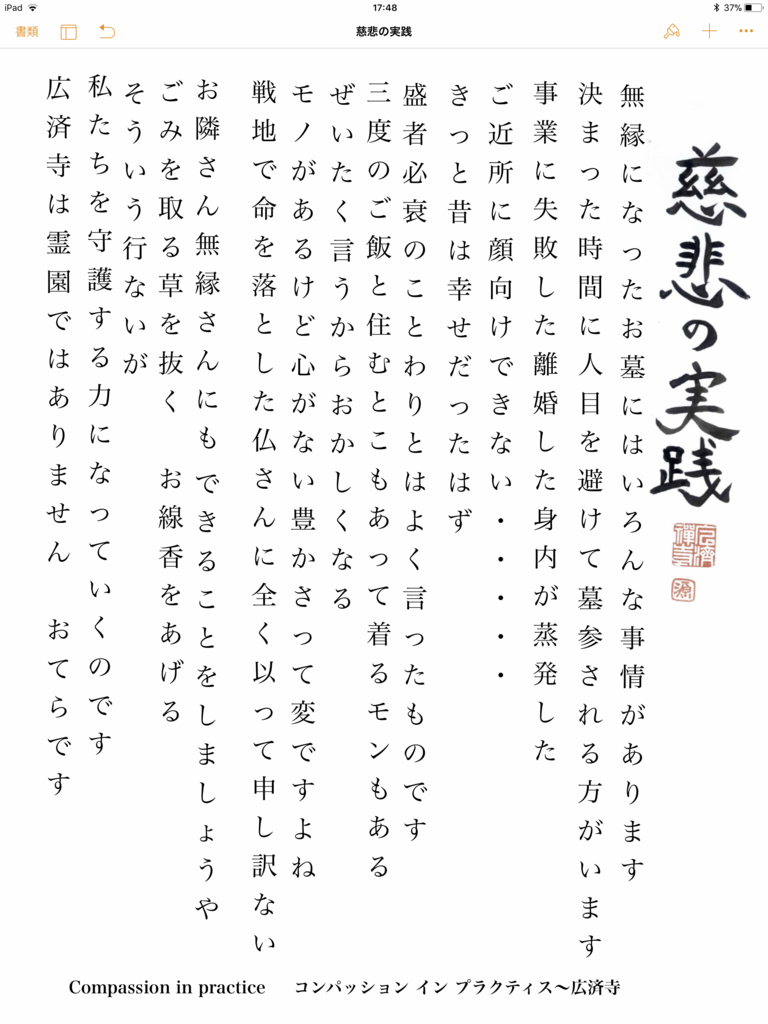 iPad 17:48 37%
書類 慈悲の実践
慈悲の実践
広濟禪寺
源
無縁になったお墓にはいろんな事情があります
決まった時間に人目を避けて墓参される方がいます
事業に失敗した離婚した身内が蒸発した
ご近所に顔向けできない・・・・・
きっと昔は幸せだったはず
盛者必衰のことわりとはよく言ったものです
三度のご飯と住むとこもあって着るモンもある
ぜいたく言うからおかしくなる
モノがあるけど心がない豊かさって変ですよね
戦地で命を落とした仏さんに全く以って申し訳ない
お隣さん無縁さんにもできることをしましょうや
ごみを取る草を抜く　お線香をあげる
そういう行ないが
私たちを守護する力になっていくのです
広済寺は霊園ではありません　おてらです
Compassion in practice コンパッション イン プラクティス〜広済寺